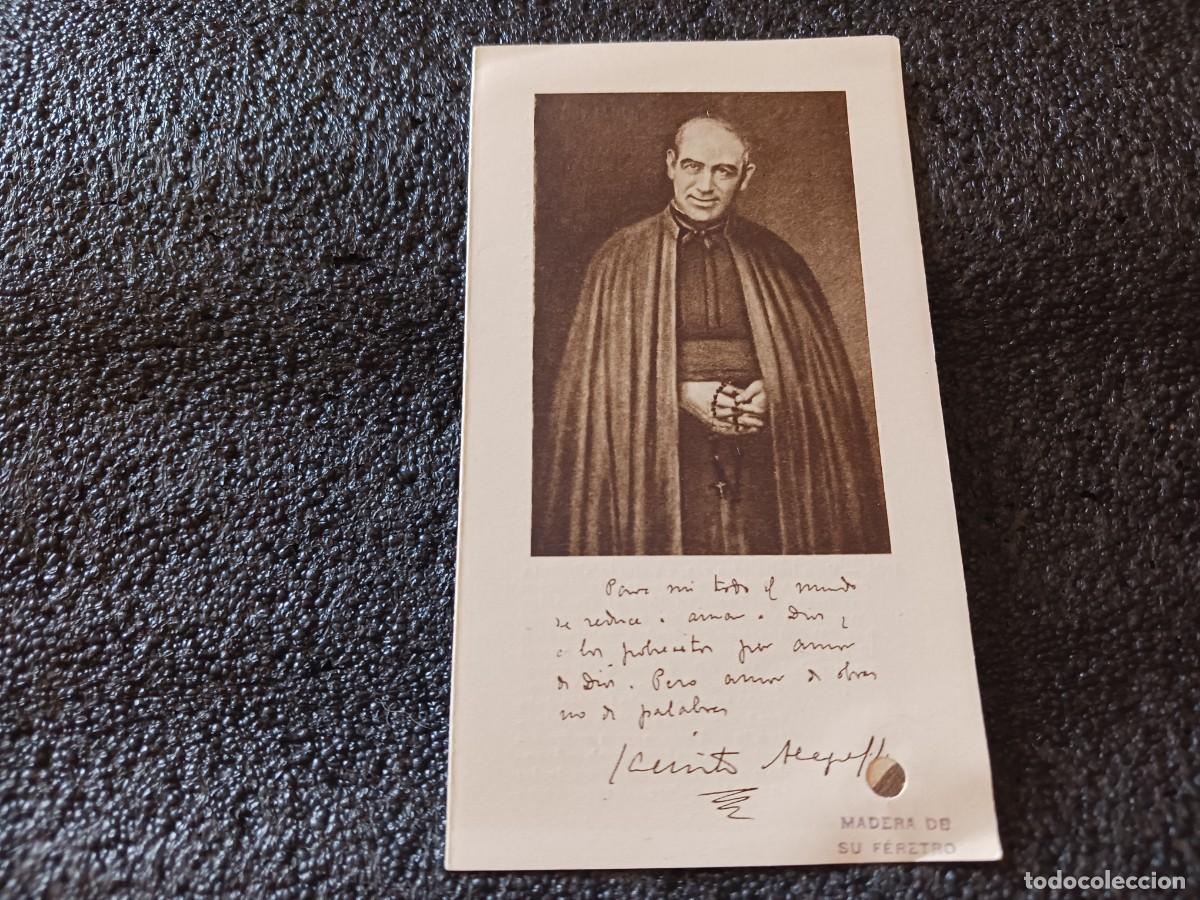 Para mi todo el mundo
se reduce a amar a Dios y
a los pobrecitos por amor
de Dios. Pero amor de obras
no de palabras
Jacinto Alegre
MADERA DE
SU FÉRETRO
todocoleccion